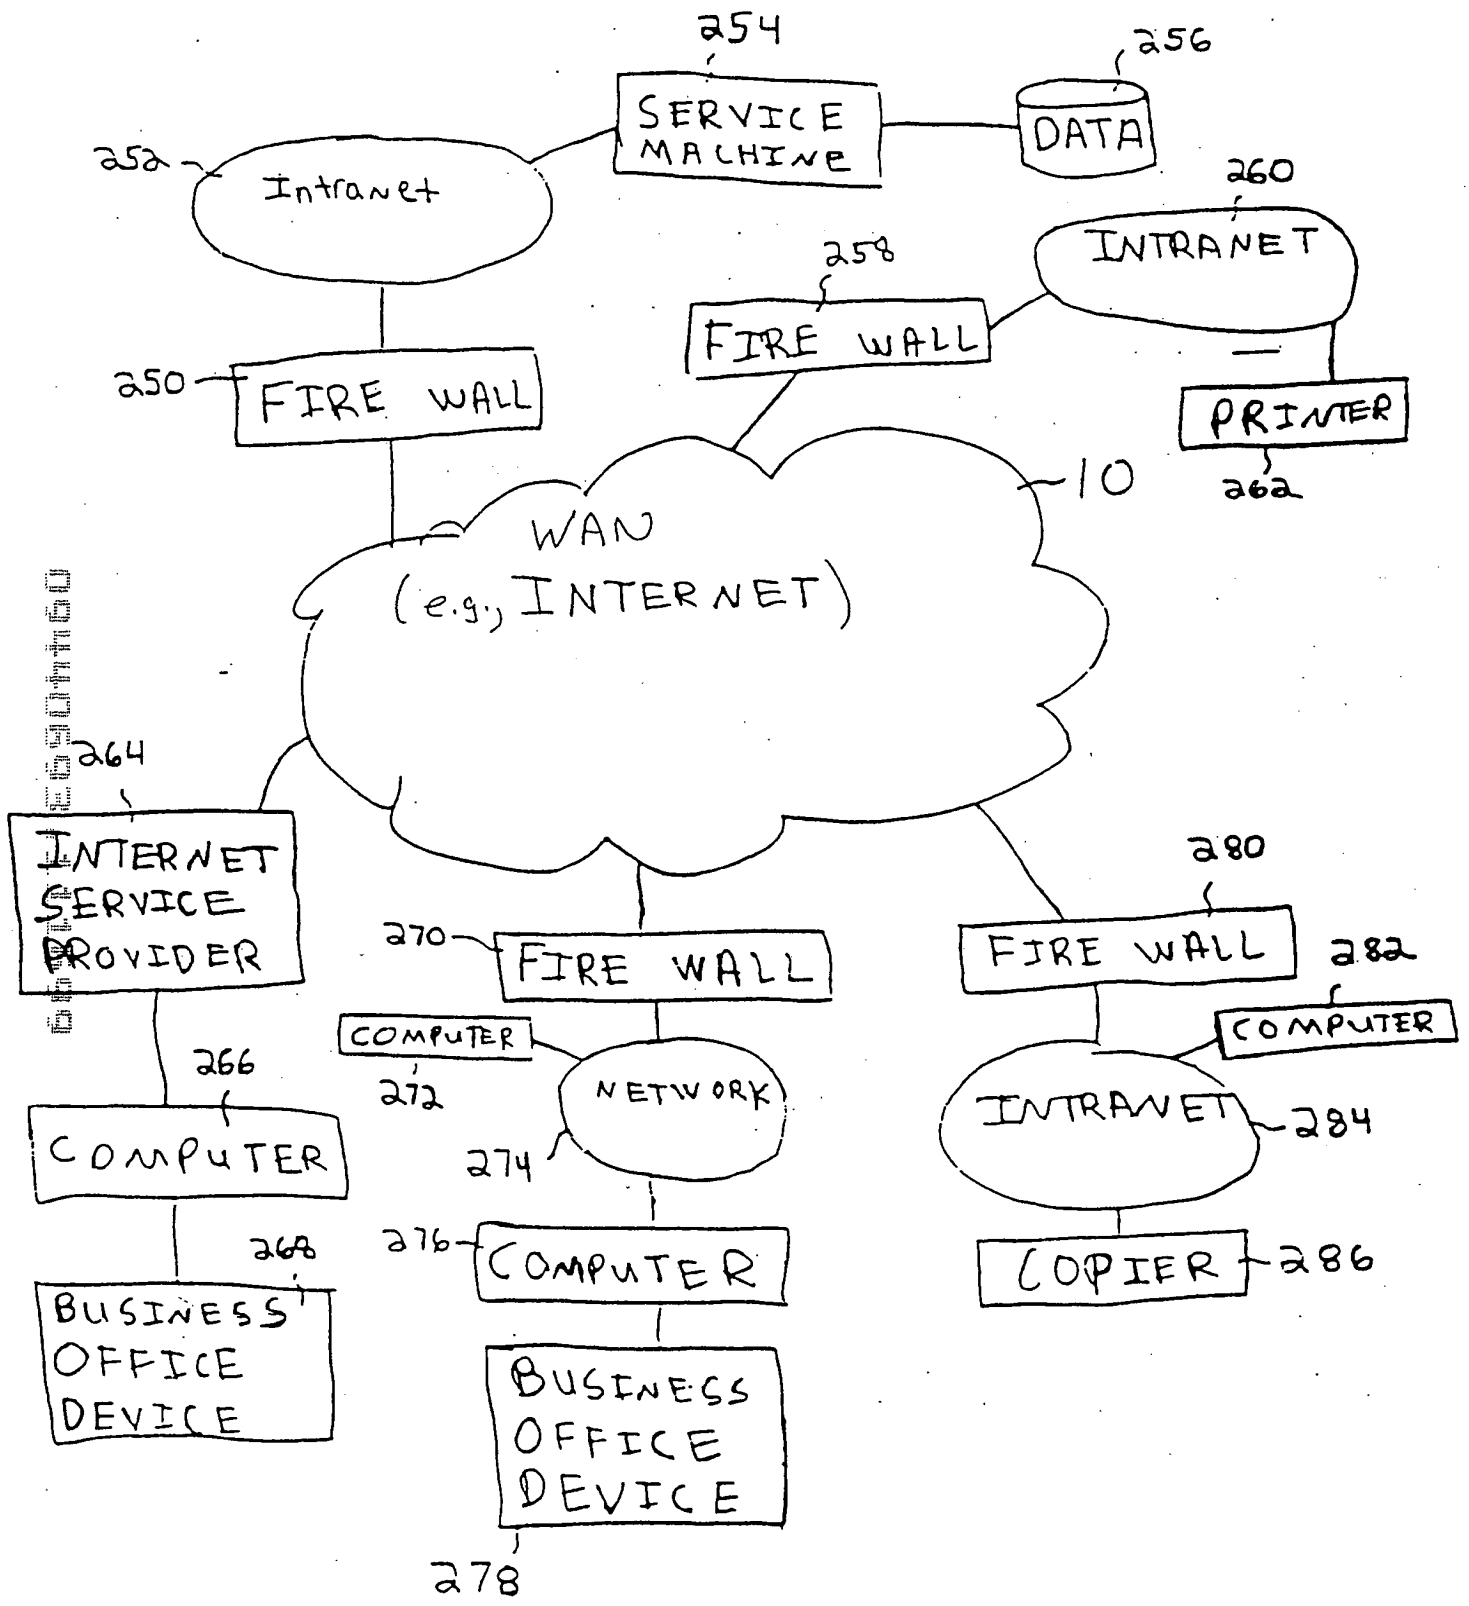 254
256
SERVICE
MACHINE
DATA
252
Intranet
260
INTRANET
258
FIRE WALL
250
FIRE WALL
PRINTER
262
10
WAN
(e.g., INTERNET)
264
INTERNET
SERVICE
PROVIDER
280
270
FIRE WALL
FIRE WALL
282
COMPUTER
COMPUTER
266
272
NETWORK
INTRANET
284
274
COMPUTER
268
276
COMPUTER
COPIER
286
BUSINESS
OFFICE
DEVICE
BUSINESS
OFFICE
DEVICE
278